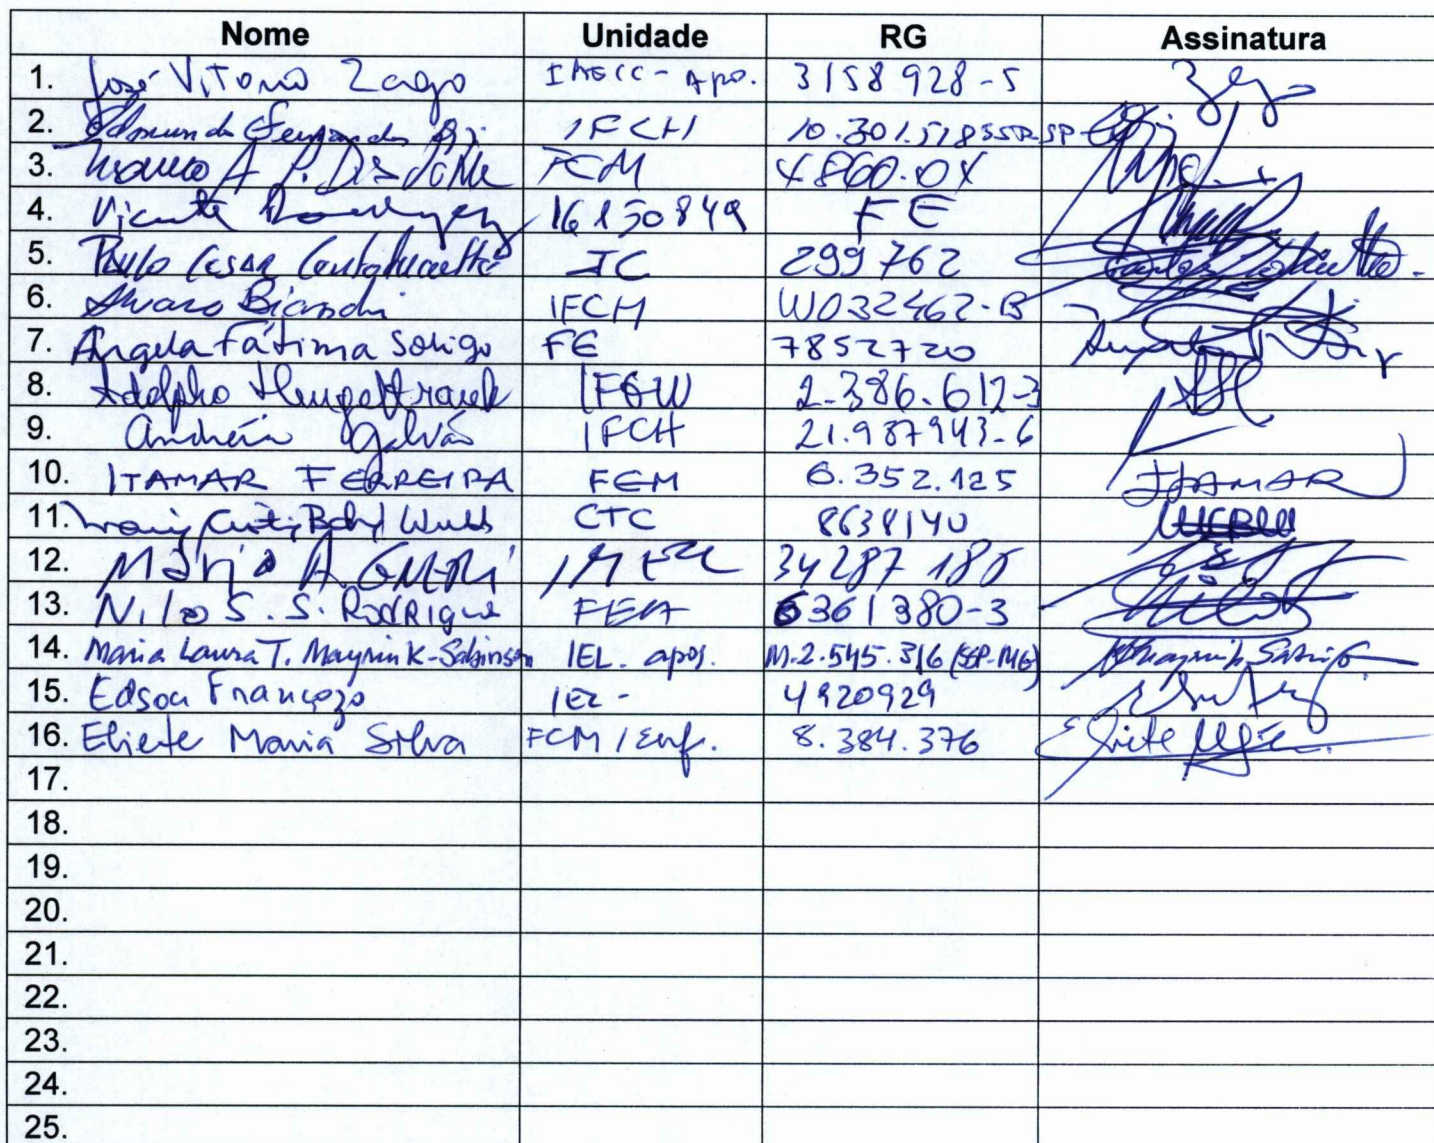 Nome Unidade RG Assinatura
1. José Vitorio Zago IMECC - Apo. 3158 928-5 Zago
2. Edmundo Fernandes Dias IFCH 10.301.518 SSP-SP
3. FCM
4. Vicente Rodriguez 16150849 FE
5. Paulo Cesar Centoducatte IC 299762
6. Alvaro Bianchi IFCH W032462-B
7. Angela Fátima Soligo FE 7852720
8. Adolpho Hengeltraub IFGW 2.386.612-3
9. Andréia Galvão IFCH 21.987943-6
10. ITAMAR FERREIRA FEM 6.352.125 ITAMAR
11. CTC 8638140
12. Mário A. 34287 180
13. Nilo S. S. Rodrigue FEA 6361380-3
14. Maria Laura T. Mayrink-Sabinson IEL. apos. M.2.545.316 (SSP-MG) Mayrink Sabinson
15. Edson Françozo IEL - 4920929
16. Eliete Maria Silva FCM / Enf. 8.384.376 Eliete
17.
18.
19.
20.
21.
22.
23.
24.
25.